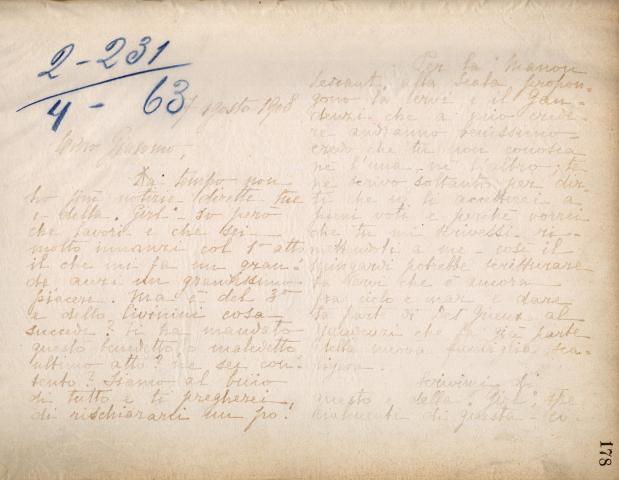 2 - 231
4 - 63
7 agosto 1908
Caro Giacomo,
Da tempo non
ho più notizie dirette tue
e della "Girl" - so però
che lavori e che sei
molto innanzi col 1º atto
il che mi fa un gran-
de anzi un grandissimo
piacere. Ma e del 3º
e dello Civinini cosa
succede? Ti ha mandato
questo benedetto o maledetto
ultimo atto? ne sei con-
tento? Siamo al buio
di tutto e ti pregherei
di rischiararci un po'!
Per la Manon
Lescaut alla Scala propon-
gono la Cervi e il
che a mio crede-
re andranno benissimo
credo che tu non conosca
nè l'una nè l'altro; te
ne scrivo soltanto per dir-
ti che
e perchè vorrei
che tu mi scrivessi ri-
mettendoti a me - così il
potrebbe scritturare
la Cervi che è ancora
fra cielo e mar e dare
la parte di Des Grieux al
che fa già parte
della nuova famiglia sca-
ligera.
Scrivimi di
questo e della "Girl" spe-
cialmente di questa - ci-
178